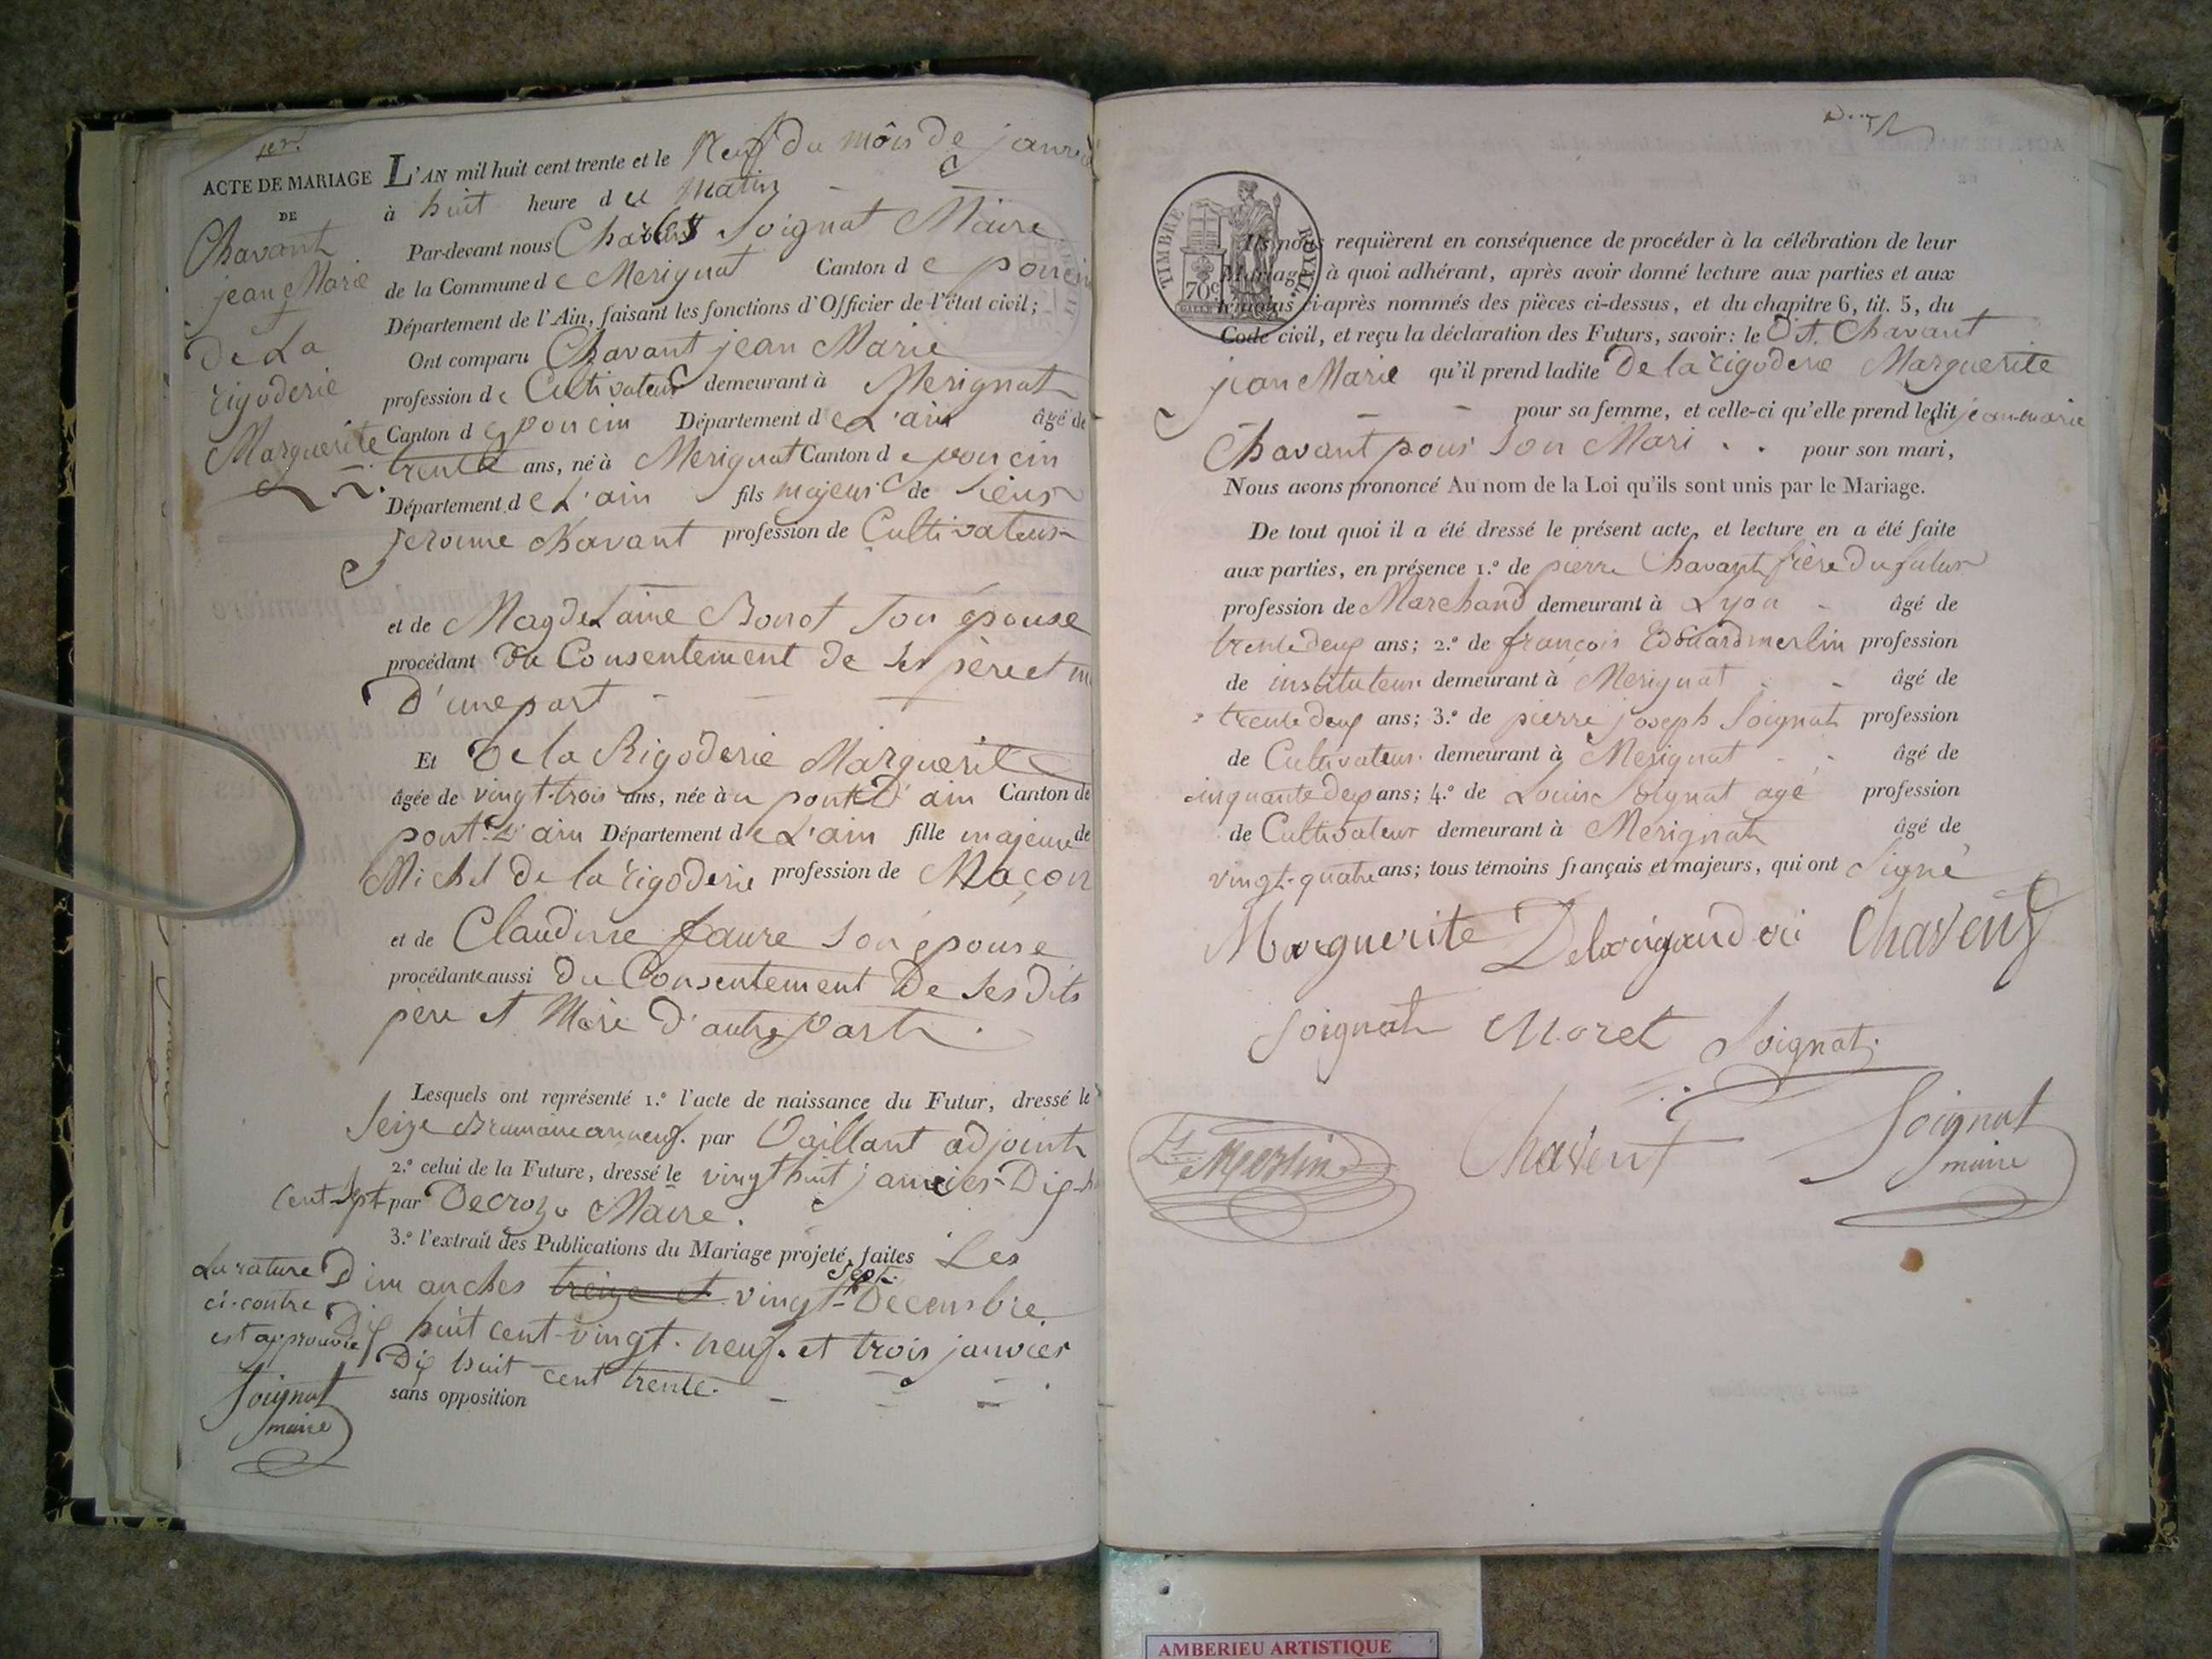 1er.
ACTE DE MARIAGE
DE
Chavant
jean Marie
De La
rigoderie
Marguerite
L'AN mil huit cent trente et le Neuf du môis de janvie
à huit heure du Matin
Par-devant nous Charles Soignat Maire
de la Commune de Merignat Canton de poncin
Département de l'Ain, faisant les fonctions d'Officier de l'état civil;
Ont comparu Chavant jean Marie
profession de Cultivateur demeurant à Merignat
Canton de poncin Département de L'ain âgé de
trente ans, né à Merignat Canton de poncin
Département de L'ain fils majeur de Sieur
Jerome Chavant profession de Cultivateur
et de Magdelaine Bonot Son épouse
procédant du Consentement de ses père et m
D'une part
Et De la Rigoderie Marguerite
âgée de vingt-trois ans, née à pont D'ain Canton de
pont-D'ain Département de L'ain fille majeure de
Michel De la rigoderie profession de Maçon
et de Claudine faure Son épouse
procédante aussi du Consentement De ses dits
père et Mère d'autre part.
Lesquels ont représenté 1.º l'acte de naissance du Futur, dressé le
Seize Brumaire an neuf. par Vaillant adjoint
2.º celui de la Future, dressé le vingt huit janvier Dix-h
Cent-Sept par Decroze Maire.
3.º l'extrait des Publications du Mariage projeté, faites Les
Dimanches treize et vingt-sept Décembre
Dix huit cent-vingt-neuf. et trois janvier
Dix huit cent trente.
sans opposition
La rature
ci-contre
est approuvée
Soignat
maire
TIMBRE ROYAL
70c
Ils nous requièrent en conséquence de procéder à la célébration de leur
Mariage, à quoi adhérant, après avoir donné lecture aux parties et aux
témoins ci-après nommés des pièces ci-dessus, et du chapitre 6, tit. 5, du
Code civil, et reçu la déclaration des Futurs, savoir: le Dit. Chavant
jean Marie qu'il prend ladite De la rigoderie Marguerite
pour sa femme, et celle-ci qu'elle prend ledit jean-marie
Chavant pour son Mari . . pour son mari,
Nous avons prononcé Au nom de la Loi qu'ils sont unis par le Mariage.
De tout quoi il a été dressé le présent acte, et lecture en a été faite
aux parties, en présence 1.º de pierre Chavant frère du futur
profession de Marchand demeurant à Lyon âgé de
trente deux ans; 2.º de françois Edouard merlin profession
de instituteur demeurant à Merignat âgé de
trente deux ans; 3.º de pierre joseph Soignat profession
de Cultivateur demeurant à Merignat âgé de
cinquante deux ans; 4.º de Louis Soignat agé profession
de Cultivateur demeurant à Merignat âgé de
vingt-quatre ans; tous témoins français et majeurs, qui ont Signé
Marguerite Delarigauderi Chavent
Soignat Moret Soignat
Merlin Chavent Soignat
maire
AMBERIEU ARTISTIQUE